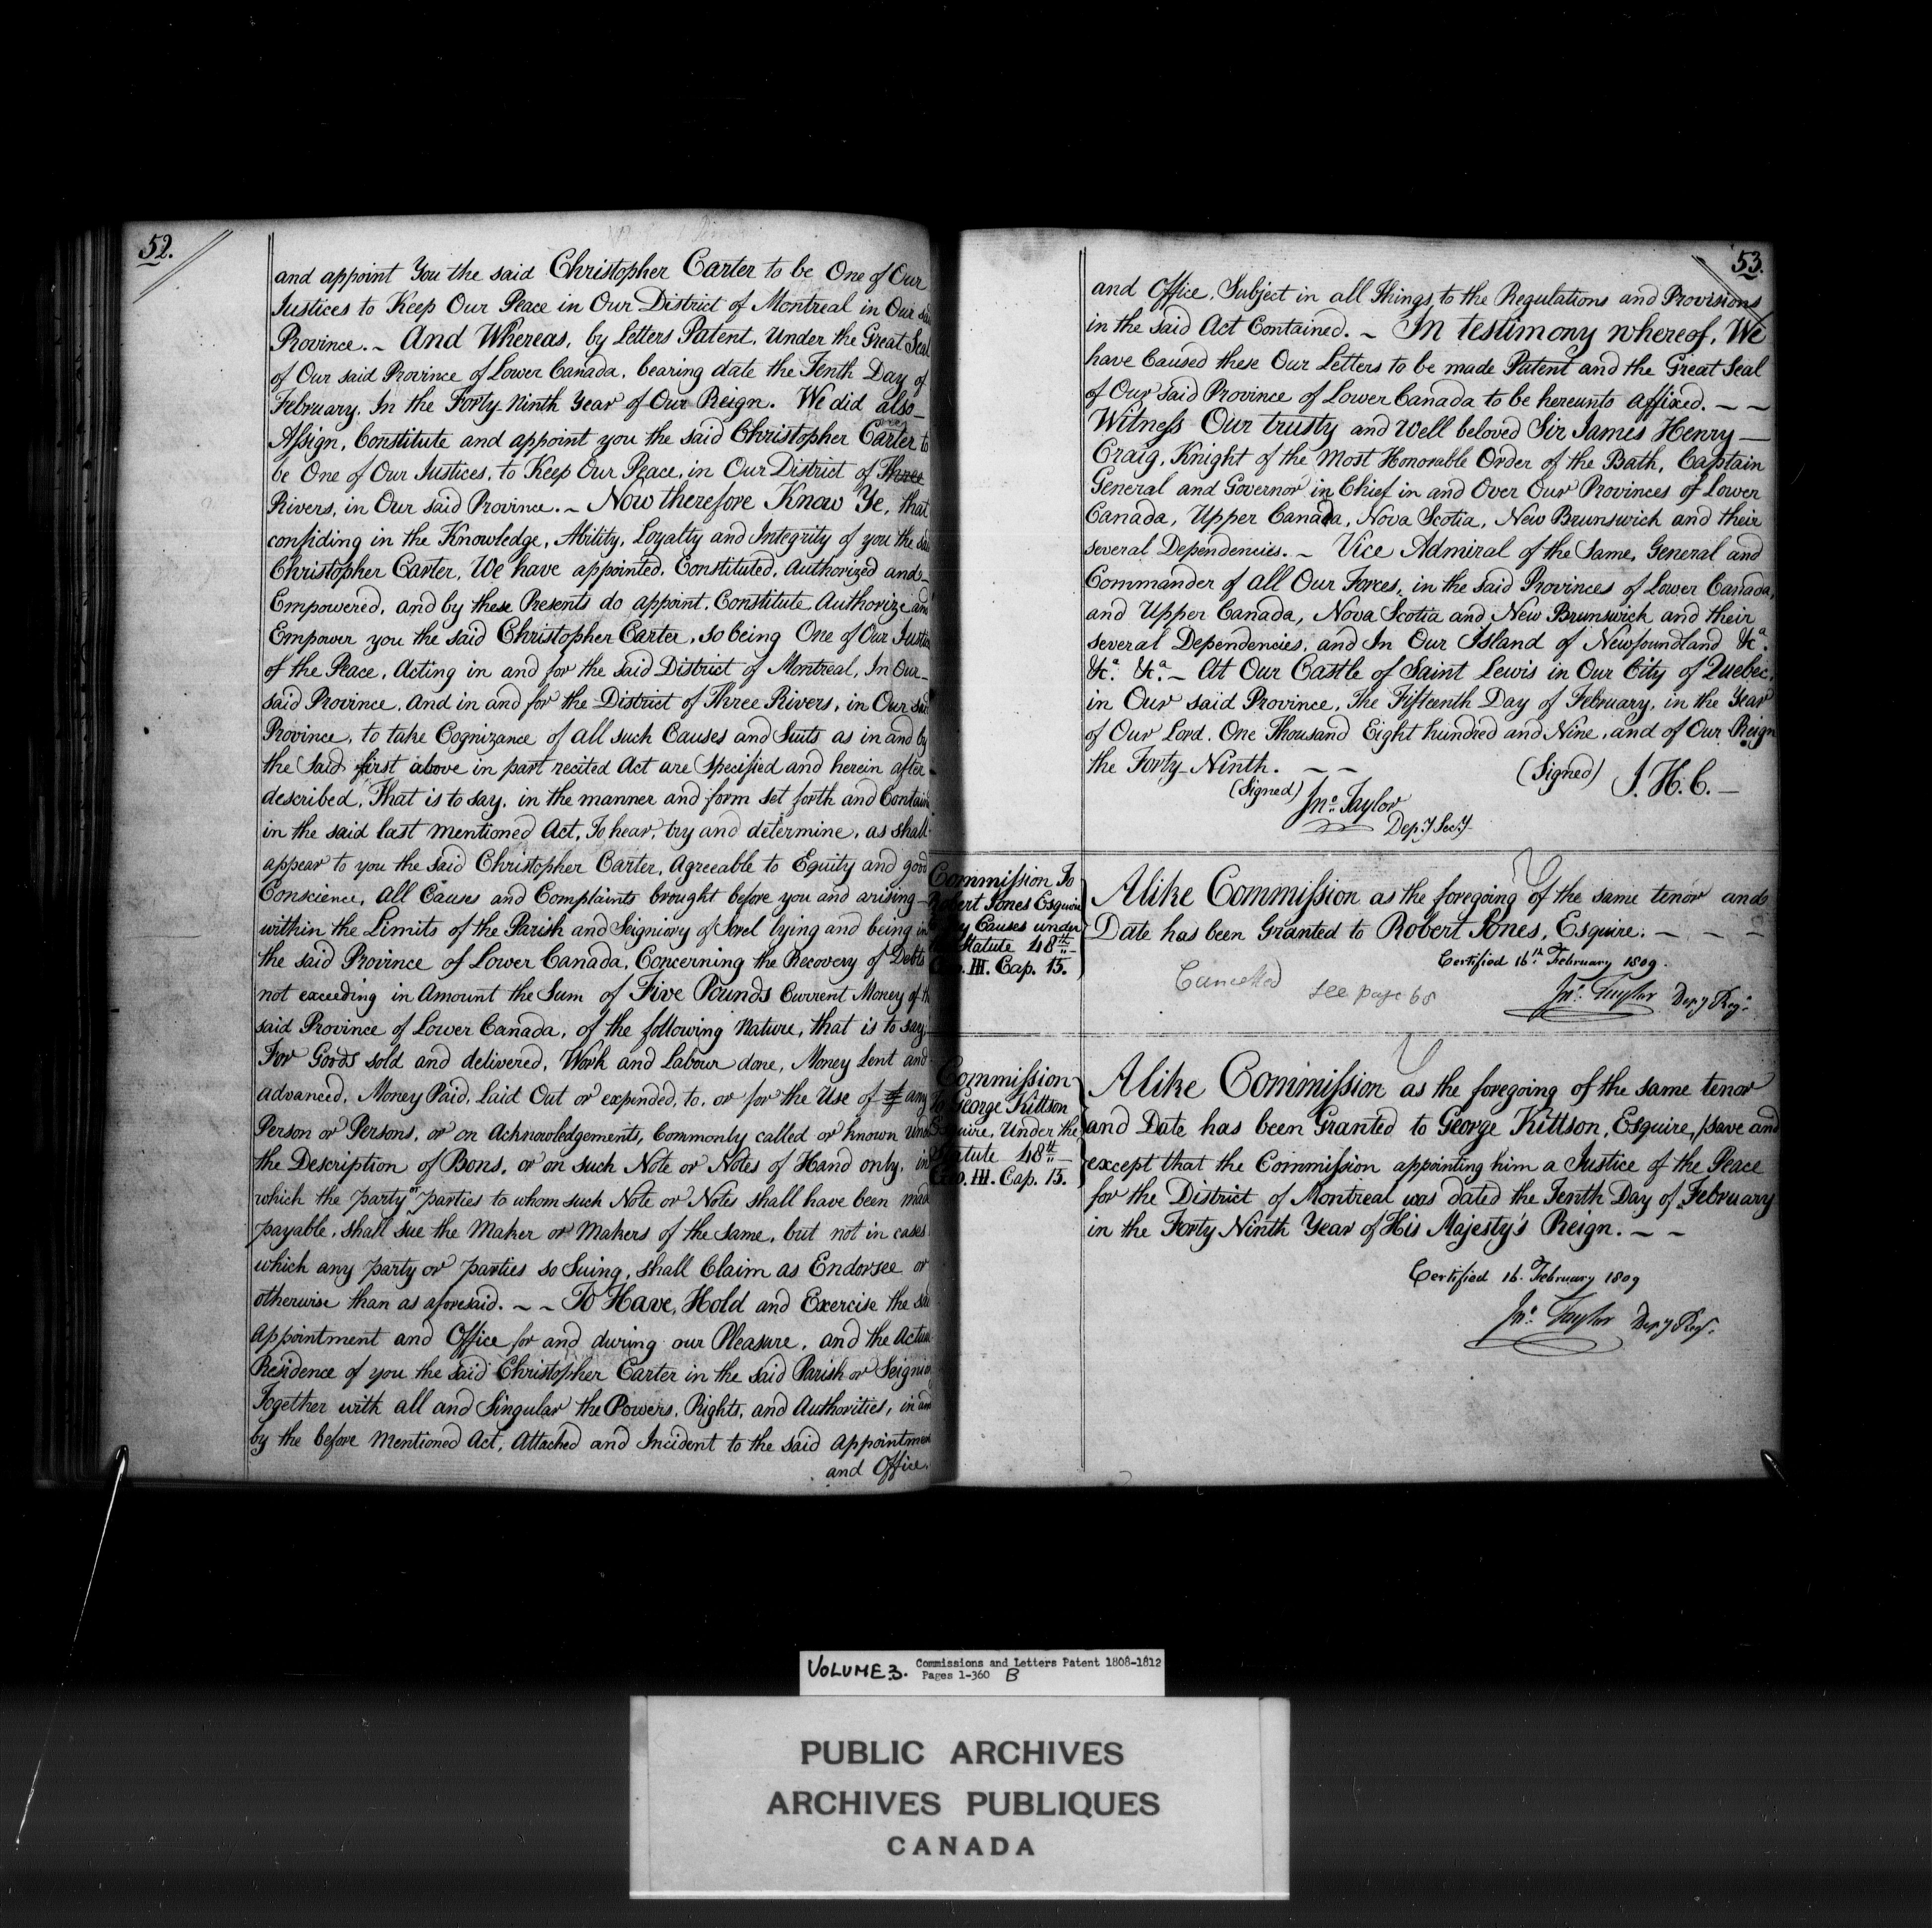 52.
and appoint You the said Christopher Carter to be One of Our
Justices to Keep Our Peace in Our District of Montreal in Our
Province. ~ And Whereas, by Letters Patent, Under the Great Seal
of Our said Province of Lower Canada, bearing date the Tenth Day of
February, In the Forty-Ninth Year of Our Reign. We did also
Assign, Constitute and appoint you the said Christopher Carter to
be One of Our Justices, to Keep Our Peace, in Our District of Three
Rivers, in Our said Province. ~ Now therefore Know Ye, that
confiding in the Knowledge, Ability, Loyalty and Integrity of you the
Christopher Carter, We have appointed, Constituted, Authorized and
Empowered, and by these Presents do appoint, Constitute Authorize and
Empower you the said Christopher Carter, so being One of Our
of the Peace, Acting in and for the said District of Montreal, In Our
said Province, And in and for the District of Three Rivers, in Our
Province, to take Cognizance of all such Causes and Suits as in and by
the Said first above in part recited Act are Specified and herein after
described, That is to say, in the manner and form set forth and
in the said last mentioned Act, To hear, try and determine, as shall
appear to you the said Christopher Carter, Agreeable to Equity and good
Conscience, all Causes and Complaints brought before you and arising
within the Limits of the Parish and Seigniory of Sorel lying and being in
the said Province of Lower Canada, Concerning the Recovery of Debts
not exceeding in Amount the Sum of Five Pounds Current Money of
said Province of Lower Canada, of the following Nature, that is to say,
For Goods sold and delivered, Work and Labour done, Money lent and
advanced, Money Paid, Laid Out or expended, to, or for the Use of any
Person or Persons, or on Acknowledgements, Commonly called or known
the Description of Bons, or on such Note or Notes of Hand only, in
which the party or parties to whom such Note or Notes shall have been
payable, shall sue the Maker or Makers of the same, but not in cases
which any party or parties so Suing, shall Claim as Endorsee or
otherwise than as aforesaid. ~ ~ To Have, Hold and Exercise the
Appointment and Office for and during our Pleasure, and the
Residence of you the said Christopher Carter in the said Parish or
Together with all and Singular the Powers, Rights, and Authorities, in and
by the before Mentioned Act, Attached and Incident to the said
and Office.
53.
and Office, Subject in all Things, to the Regulations and Provisions
in the said Act Contained. ~ In testimony whereof, We
have Caused these Our Letters to be made Patent and the Great Seal
of Our said Province of Lower Canada to be hereunto affixed. ~ ~
Witness Our trusty and Well beloved Sir James Henry
Craig, Knight of the Most Honorable Order of the Bath, Captain
General and Governor in Chief in and Over Our Provinces of Lower
Canada, Upper Canada, Nova Scotia, New Brunswick and their
several Dependencies. ~ Vice Admiral of the Same, General and
Commander of all Our Forces, in the said Provinces of Lower Canada,
and Upper Canada, Nova Scotia and New Brunswick and their
several Dependencies, and In Our Island of Newfoundland &c.a
&c.a &c.a ~ At Our Castle of Saint Lewis in Our City of Quebec,
in Our said Province, The Fifteenth Day of February, in the Year
of Our Lord, One Thousand Eight hundred and Nine, and of Our Reign
the Forty-Ninth. ~ ~
(Signed) J. H. C. ~
(Signed) Jno. Taylor
Depy. Secy.
Commission To
Robert Jones Esquire
Causes under
Statute 48th
Geo. III. Cap. 15.
Alike Commission as the foregoing of the same tenor and
Date has been Granted to Robert Jones, Esquire. ~ ~ ~
Certified 16th February 1809.
Jno. Taylor Depy Regr.
Cancelled see page 68
Commission
To George Kittson
Esquire, Under the
Statute 48th
Geo. III. Cap. 15.
Alike Commission as the foregoing of the same tenor
and Date has been Granted to George Kittson, Esquire, save and
except that the Commission appointing him a Justice of the Peace
for the District of Montreal was dated the Tenth Day of February
in the Forty Ninth Year of His Majesty's Reign. ~ ~
Certified 16. February 1809
Jno. Taylor Depy Regr.
VOLUME 3. Commissions and Letters Patent 1808-1812
Pages 1-360 B
PUBLIC ARCHIVES
ARCHIVES PUBLIQUES
CANADA